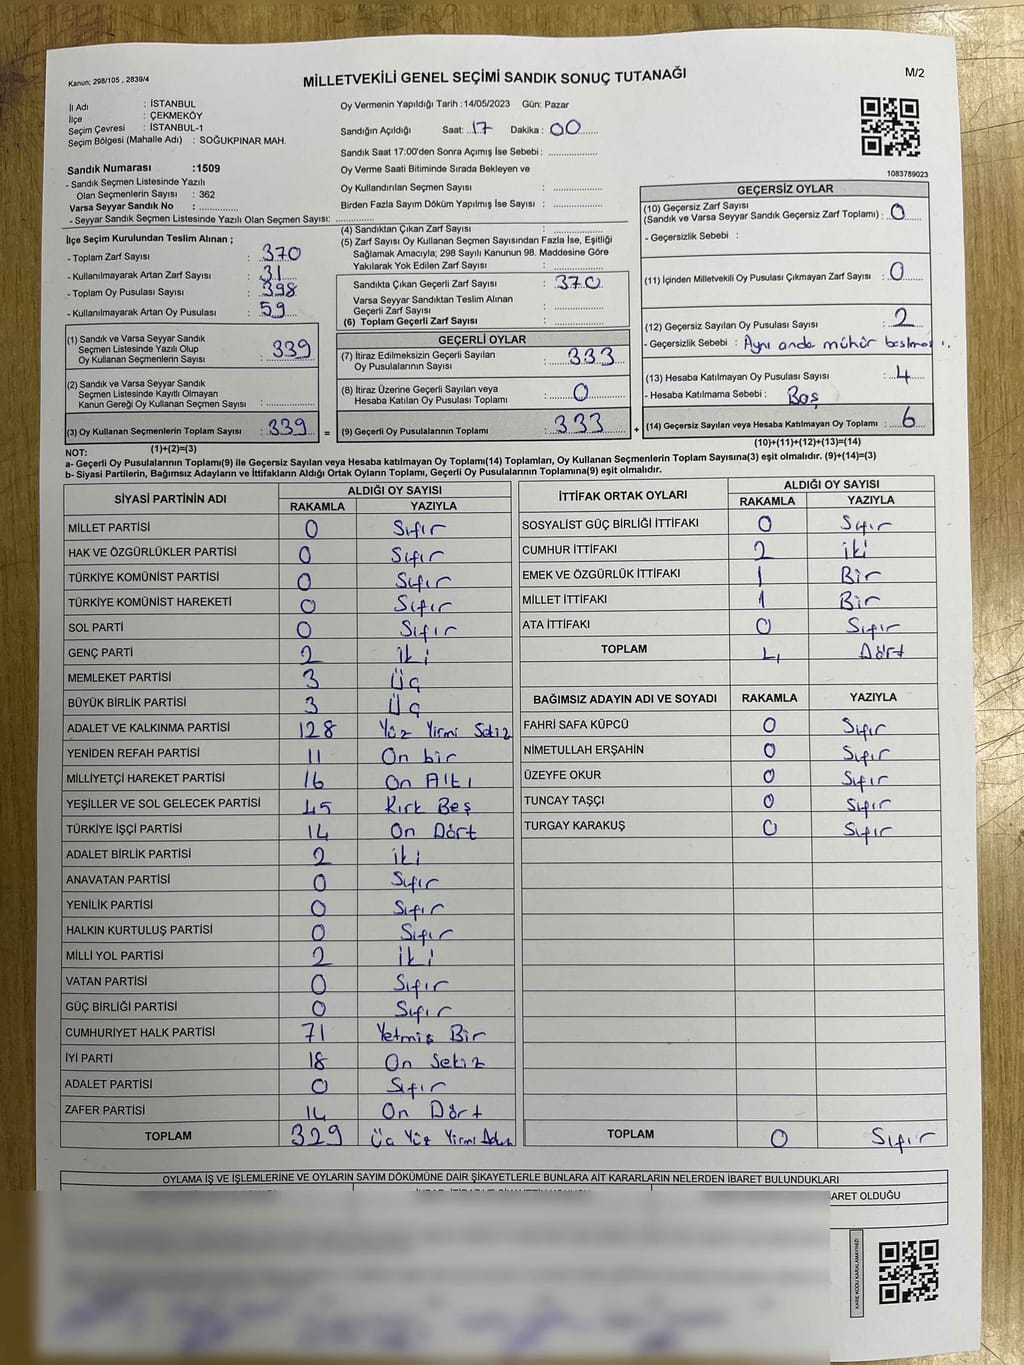 Kanun: 298/105 , 2839/4
MİLLETVEKİLİ GENEL SEÇİMİ SANDIK SONUÇ TUTANAĞI
M/2
İl Adı : İSTANBUL
İlçe : ÇEKMEKÖY
Seçim Çevresi : İSTANBUL-1
Seçim Bölgesi (Mahalle Adı) : SOĞUKPINAR MAH.
Sandık Numarası :1509
- Sandık Seçmen Listesinde Yazılı
Olan Seçmenlerin Sayısı : 362
Varsa Seyyar Sandık No : ..............
- Seyyar Sandık Seçmen Listesinde Yazılı Olan Seçmen Sayısı: ..............
Oy Vermenin Yapıldığı Tarih :14/05/2023 Gün: Pazar
Sandığın Açıldığı Saat: 17 Dakika : 00
Sandık Saat 17:00'den Sonra Açımış İse Sebebi : ..............
Oy Verme Saati Bitiminde Sırada Bekleyen ve
Oy Kullandırılan Seçmen Sayısı : ..............
Birden Fazla Sayım Döküm Yapılmış İse Sayısı : ..............
1083789023
İlçe Seçim Kurulundan Teslim Alınan ;
- Toplam Zarf Sayısı : 370
- Kullanılmayarak Artan Zarf Sayısı : 31
- Toplam Oy Pusulası Sayısı : 398
- Kullanılmayarak Artan Oy Pusulası : 59
(1) Sandık ve Varsa Seyyar Sandık
Seçmen Listesinde Yazılı Olup
Oy Kullanan Seçmenlerin Sayısı : 339
(2) Sandık ve Varsa Seyyar Sandık
Seçmen Listesinde Kayıtlı Olmayan
Kanun Gereği Oy Kullanan Seçmen Sayısı : ..............
(3) Oy Kullanan Seçmenlerin Toplam Sayısı : 339 =
(1)+(2)=(3)
(4) Sandıktan Çıkan Zarf Sayısı : ..............
(5) Zarf Sayısı Oy Kullanan Seçmen Sayısından Fazla İse, Eşitliği
Sağlamak Amacıyla; 298 Sayılı Kanunun 98. Maddesine Göre
Yakılarak Yok Edilen Zarf Sayısı : ..............
Sandıkta Çıkan Geçerli Zarf Sayısı : 370
Varsa Seyyar Sandıktan Teslim Alınan
Geçerli Zarf Sayısı : ..............
(6) Toplam Geçerli Zarf Sayısı : ..............
GEÇERLİ OYLAR
(7) İtiraz Edilmeksizin Geçerli Sayılan
Oy Pusulalarının Sayısı : 333
(8) İtiraz Üzerine Geçerli Sayılan veya
Hesaba Katılan Oy Pusulası Toplamı : 0
(9) Geçerli Oy Pusulalarının Toplamı : 333 +
GEÇERSİZ OYLAR
(10) Geçersiz Zarf Sayısı
(Sandık ve Varsa Seyyar Sandık Geçersiz Zarf Toplamı) : 0
- Geçersizlik Sebebi :
(11) İçinden Milletvekili Oy Pusulası Çıkmayan Zarf Sayısı : 0
(12) Geçersiz Sayılan Oy Pusulası Sayısı : 2
- Geçersizlik Sebebi : Aynı anda mühür
(13) Hesaba Katılmayan Oy Pusulası Sayısı : 4
- Hesaba Katılmama Sebebi : Boş
(14) Geçersiz Sayılan veya Hesaba Katılmayan Oy Toplamı : 6
(10)+(11)+(12)+(13)=(14)
NOT:
a- Geçerli Oy Pusulalarının Toplamı(9) ile Geçersiz Sayılan veya Hesaba katılmayan Oy Toplamı(14) Toplamları, Oy Kullanan Seçmenlerin Toplam Sayısına(3) eşit olmalıdır. (9)+(14)=(3)
b- Siyasi Partilerin, Bağımsız Adayların ve İttifakların Aldığı Ortak Oyların Toplamı, Geçerli Oy Pusulalarının Toplamına(9) eşit olmalıdır.
SİYASİ PARTİNİN ADI ALDIĞI OY SAYISI
RAKAMLA YAZIYLA
MİLLET PARTİSİ 0 Sıfır
HAK VE ÖZGÜRLÜKLER PARTİSİ 0 Sıfır
TÜRKİYE KOMÜNİST PARTİSİ 0 Sıfır
TÜRKİYE KOMÜNİST HAREKETİ 0 Sıfır
SOL PARTİ 0 Sıfır
GENÇ PARTİ 2 İki
MEMLEKET PARTİSİ 3 Üç
BÜYÜK BİRLİK PARTİSİ 3 Üç
ADALET VE KALKINMA PARTİSİ 128 Yüz Yirmi Sekiz
YENİDEN REFAH PARTİSİ 11 On bir
MİLLİYETÇİ HAREKET PARTİSİ 16 On Altı
YEŞİLLER VE SOL GELECEK PARTİSİ 45 Kırk Beş
TÜRKİYE İŞÇİ PARTİSİ 14 On Dört
ADALET BİRLİK PARTİSİ 2 İki
ANAVATAN PARTİSİ 0 Sıfır
YENİLİK PARTİSİ 0 Sıfır
HALKIN KURTULUŞ PARTİSİ 0 Sıfır
MİLLİ YOL PARTİSİ 2 İki
VATAN PARTİSİ 0 Sıfır
GÜÇ BİRLİĞİ PARTİSİ 0 Sıfır
CUMHURİYET HALK PARTİSİ 71 Yetmiş Bir
İYİ PARTİ 18 On Sekiz
ADALET PARTİSİ 0 Sıfır
ZAFER PARTİSİ 14 On Dört
TOPLAM 329 Üç Yüz Yirmi
İTTİFAK ORTAK OYLARI ALDIĞI OY SAYISI
RAKAMLA YAZIYLA
SOSYALİST GÜÇ BİRLİĞİ İTTİFAKI 0 Sıfır
CUMHUR İTTİFAKI 2 İki
EMEK VE ÖZGÜRLÜK İTTİFAKI 1 Bir
MİLLET İTTİFAKI 1 Bir
ATA İTTİFAKI 0 Sıfır
TOPLAM 4 Dört
BAĞIMSIZ ADAYIN ADI VE SOYADI RAKAMLA YAZIYLA
FAHRİ SAFA KÜPCÜ 0 Sıfır
NİMETULLAH ERŞAHİN 0 Sıfır
ÜZEYFE OKUR 0 Sıfır
TUNCAY TAŞÇI 0 Sıfır
TURGAY KARAKUŞ 0 Sıfır
TOPLAM 0 Sıfır
OYLAMA İŞ VE İŞLEMLERİNE VE OYLARIN SAYIM DÖKÜMÜNE DAİR ŞİKAYETLERLE BUNLARA AİT KARARLARIN NELERDEN İBARET BULUNDUKLARI
OLDUĞU
KARE KODU KARALAMAYINIZ!